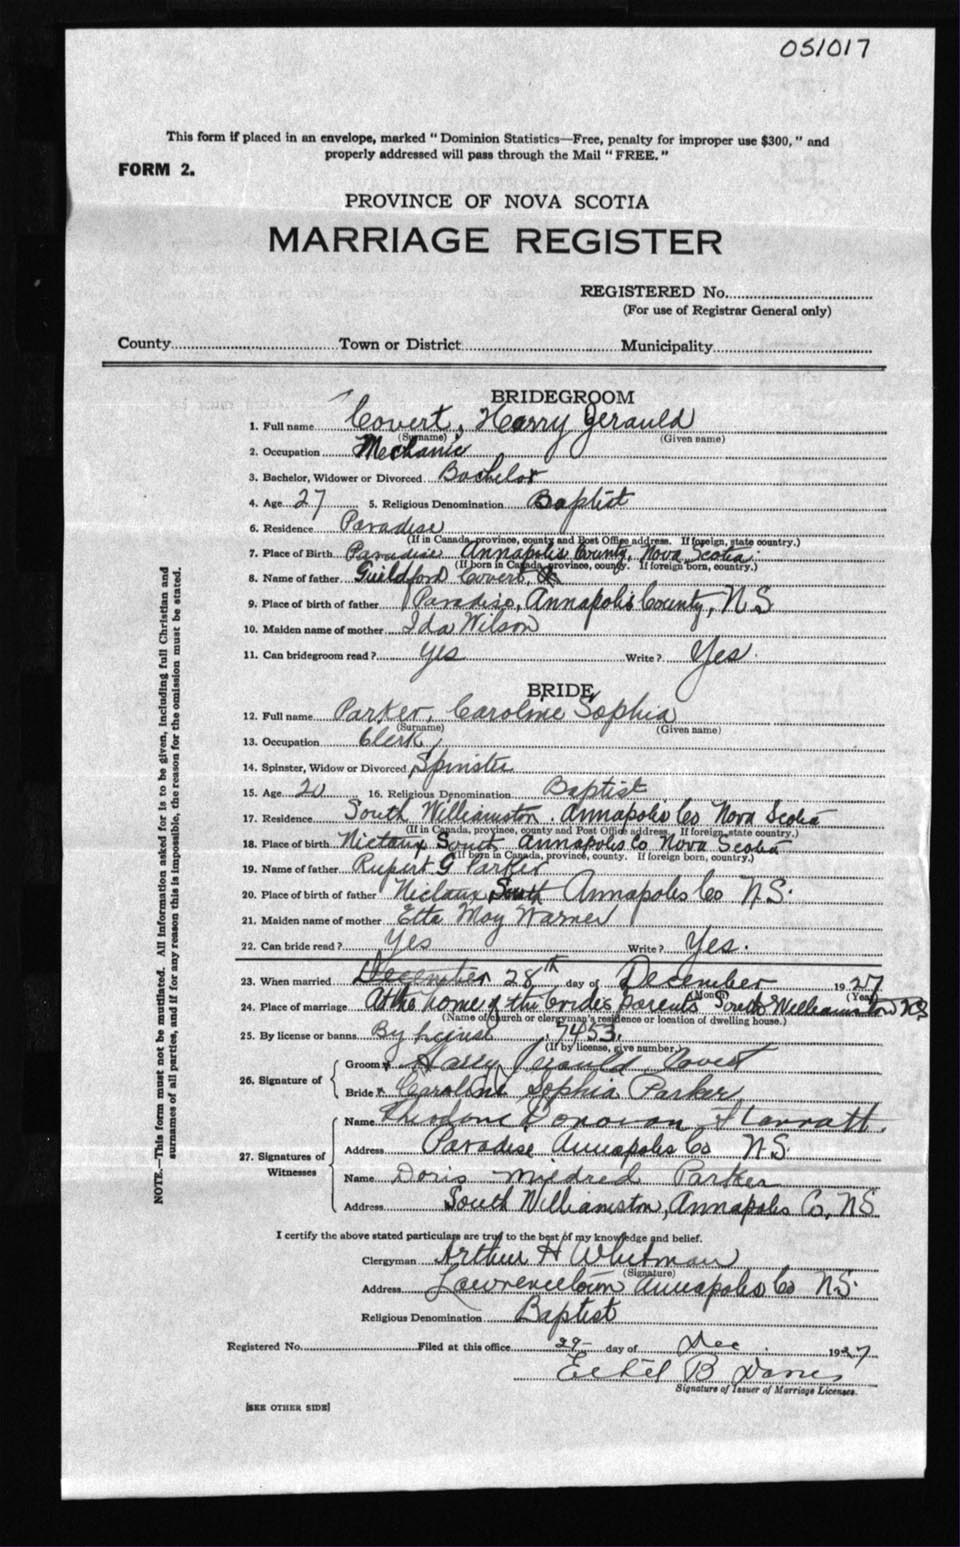 051017
This form if placed in an envelope, marked "Dominion Statistics—Free, penalty for improper use $300," and
properly addressed will pass through the Mail "FREE."
FORM 2.
PROVINCE OF NOVA SCOTIA
MARRIAGE REGISTER
REGISTERED No.
(For use of Registrar General only)
County Town or District Municipality
BRIDEGROOM
1. Full name Covert, Harry Gerauld
(Surname) (Given name)
2. Occupation Mechanic
3. Bachelor, Widower or Divorced Bachelor
4. Age 27 5. Religious Denomination Baptist
6. Residence Paradise
(If in Canada, province, county and Post Office address. If foreign, state country.)
7. Place of Birth Paradise Annapolis County, Nova Scotia
(If born in Canada, province, county. If foreign born, country.)
8. Name of father Guildford Covert
9. Place of birth of father Paradise, Annapolis County, N.S
10. Maiden name of mother Ida Wilson
11. Can bridegroom read? yes Write? Yes.
BRIDE
12. Full name Parker, Caroline Sophia
(Surname) (Given name)
13. Occupation Clerk
14. Spinster, Widow or Divorced Spinster
15. Age 20 16. Religious Denomination Baptist
17. Residence South Williamston. Annapolis Co Nova Scotia
(If in Canada, province, county and Post Office address. If foreign, state country.)
18. Place of birth Nictaux South Annapolis Co Nova Scotia
(If born in Canada, province, county. If foreign born, country.)
19. Name of father Rupert G Parker
20. Place of birth of father Nictaux South Annapolis Co N.S.
21. Maiden name of mother Etta May Warner
22. Can bride read? Yes Write? Yes.
23. When married December 28th day of December 1927
(Month) (Year)
24. Place of marriage At the home of the brides parents South Williamston N.S
(Name of church or clergyman's residence or location of dwelling house.)
25. By license or banns By License 7453.
(If by license, give number.)
26. Signature of
Groom Harry Gerauld Covert
Bride Caroline Sophia Parker
27. Signatures of Witnesses
Name Theodore Donovan Starratt.
Address Paradise Annapolis Co N.S.
Name Doris Mildred Parker
Address South Williamston, Annapolis Co, N.S
I certify the above stated particulars are true to the best of my knowledge and belief.
Clergyman Arthur H Whitman
(Signature)
Address Lawrencetown Annapolis Co N.S.
Religious Denomination Baptist
Registered No. Filed at this office 29 day of Dec. 1927
Ethel B
Signature of Issuer of Marriage Licenses.
[SEE OTHER SIDE]
NOTE.—This form must not be mutilated. All information asked for is to be given, including full Christian and
surnames of all parties, and if for any reason this is impossible, the reason for the omission must be stated.